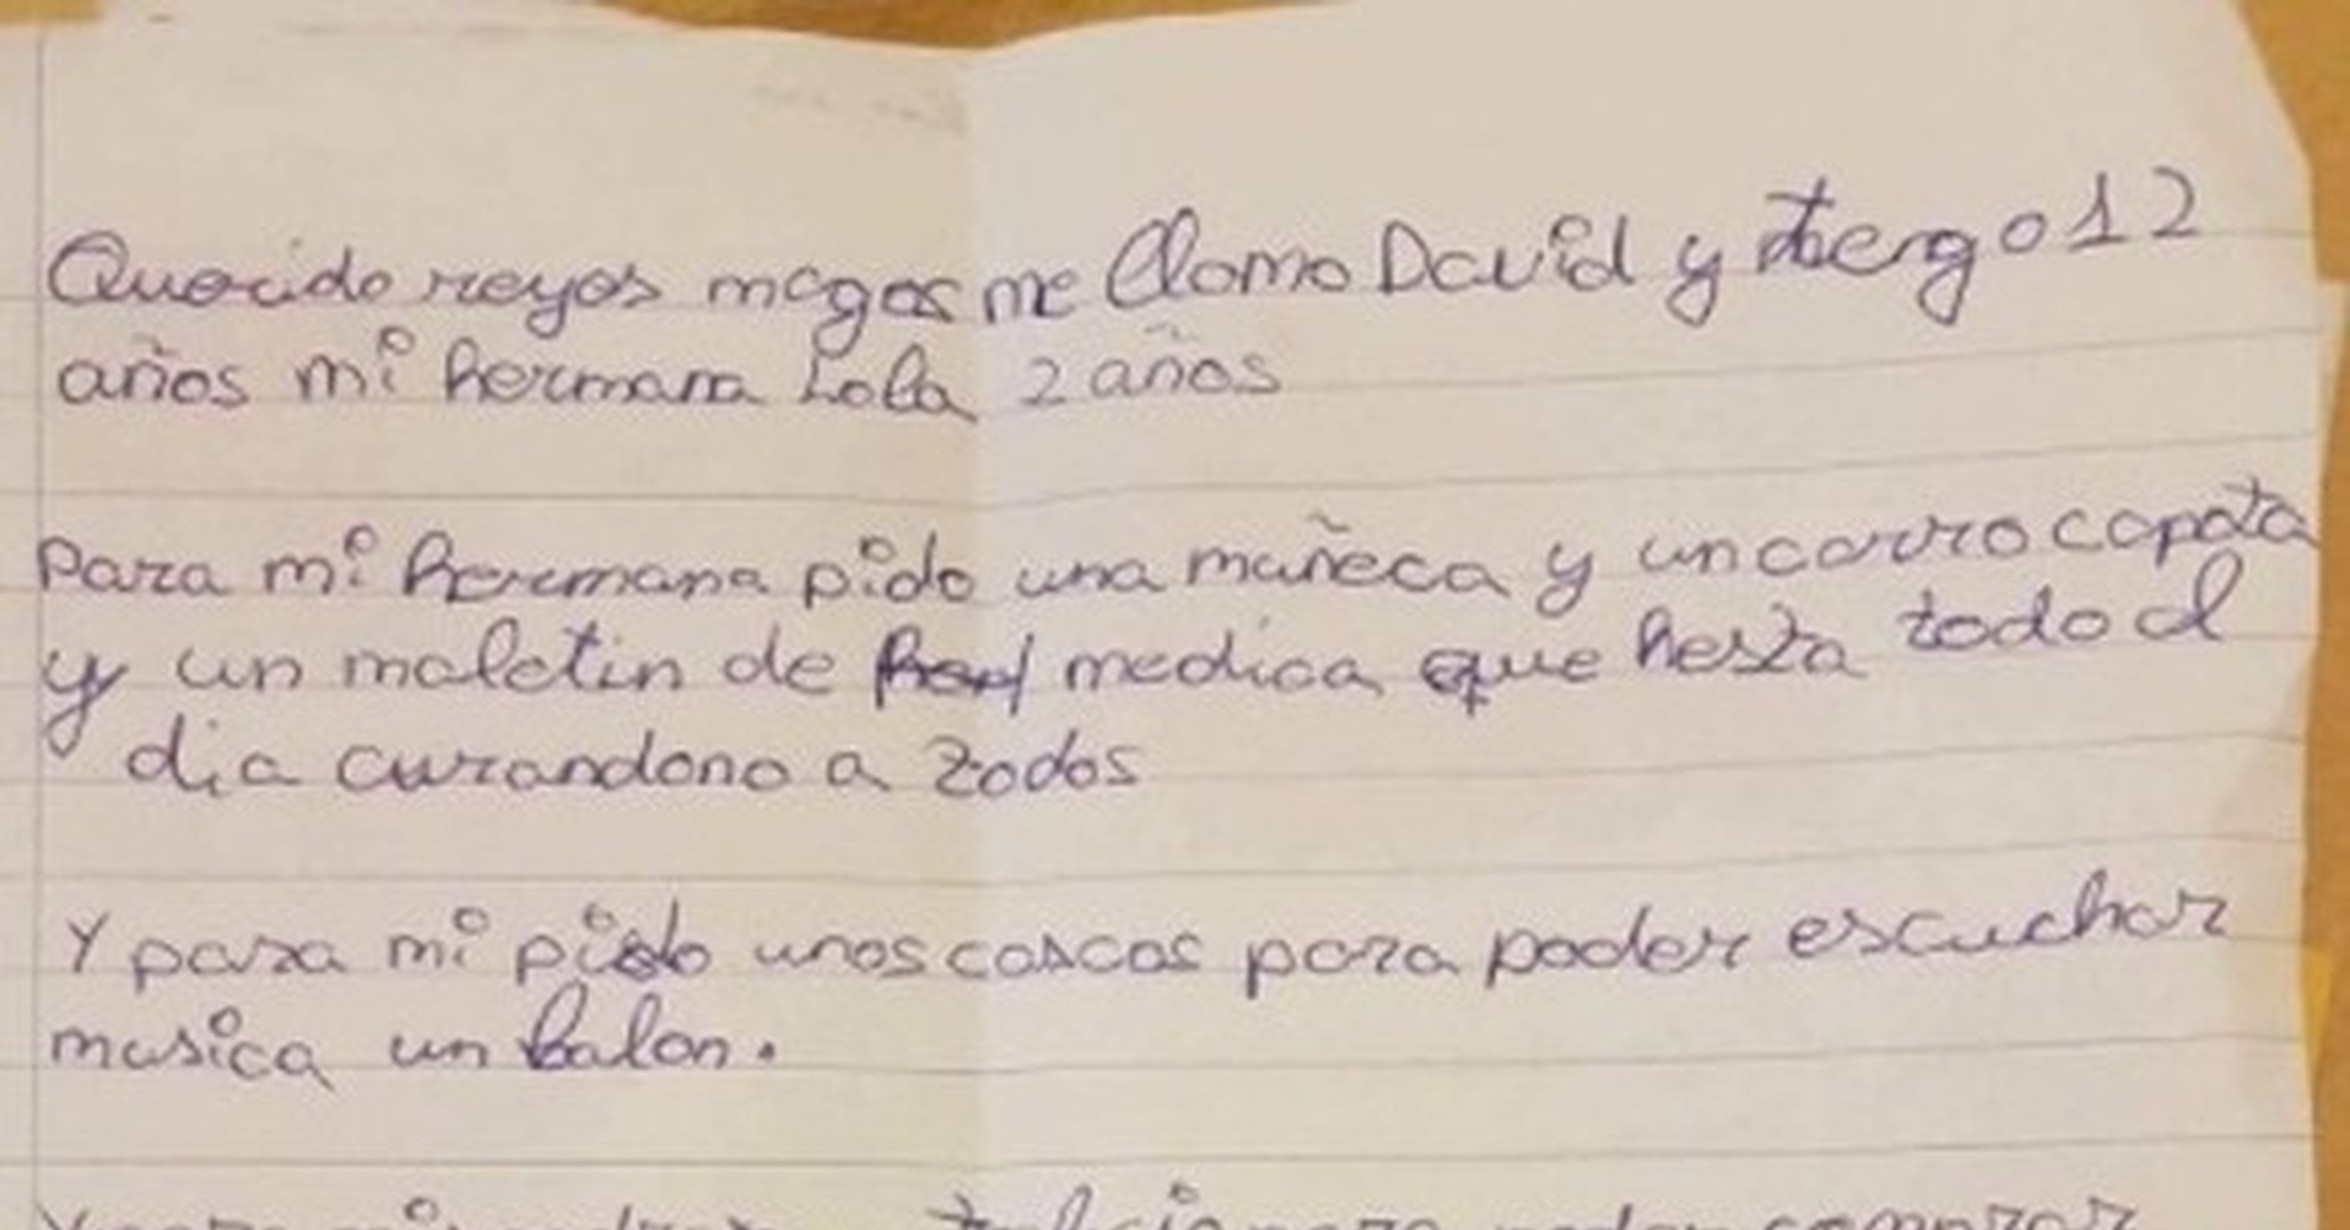 Querido reyes magos me llamo David y tengo 12
años mi hermana Lola 2 años
Para mi hermana pido una muñeca y un carro capota
y un maletin de medica que hesta todo el
dia curandono a todos
Y para mi pido unos cascos para poder escuchar
musica un balon.
para poder comprar